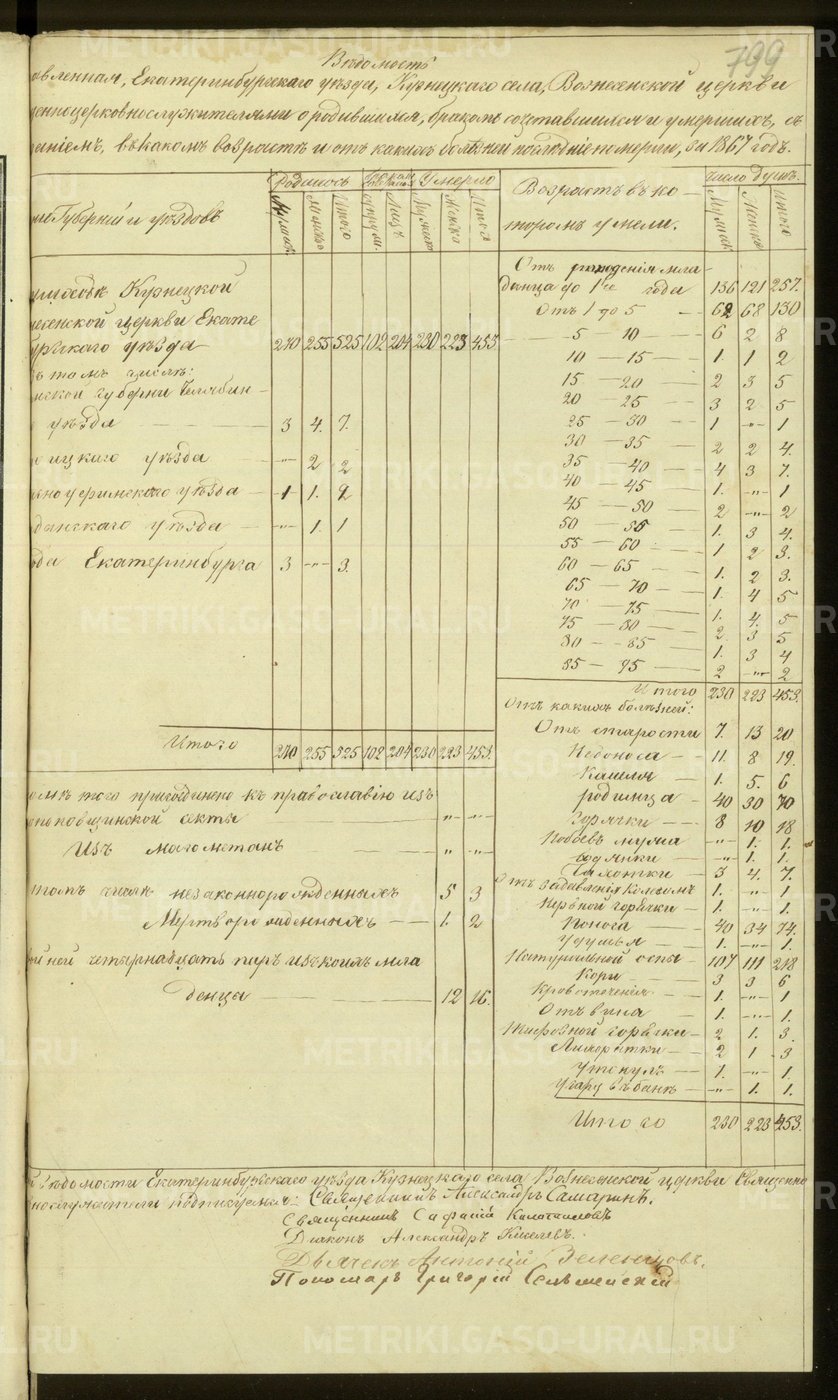 799
Вѣдомость
овленная, Екатеринбургскаго уѣзда, Кузнецкаго села, Вознесенской церкви
енноцерковнослужителями о родившихся, бракомъ сочетавшихся и умершихъ, съ
аніемъ, въ какомъ возрастѣ и отъ какихъ болѣзней послѣдніе померли, за 1867 годъ.
Родилось Умерло Возрастъ въ ко- Число душъ.
Губерній и уѣздовъ Мужеск. Женско Итого Лицъ Мужеск Женско Итого торомъ умерли. Мужеск Женско Итого
Отъ рожденія мла-
Кузнецкой денца до 1го года 136 121 257.
несенской церкви Екате Отъ 1 до 5 62 68 130
бургскаго уѣзда 270 255 525 102 204 230 223 453 5 — 10 6 2 8
въ томъ числѣ: 10 — 15 1 1 2
нской губерніи Челябин- 15 — 20 2 3 5
20 — 25 3 2 5
уѣзда 3 4. 7. 25 — 30 1 „ 1
ицкаго уѣзда „ 2 2 30 — 35 2 2 4.
35 — 40 4 3 7.
ноуфимскаго уѣзда 1 1. 2 40 — 45 1. „ 1
45 — 50 2 „ 2
данскаго уѣзда „ 1. 1 50 — 55 1. 3 4.
55 — 60 1 2 3.
ода Екатеринбурга 3 „ 3. 60 — 65 1. 2 3.
65 — 70 1. 4 5
70 — 75 1. 4. 5
75 — 80 2 3 5
80 — 85 1. 3 4
85 — 95 2 „ 2
Итого 230 223 453.
Отъ какихъ болѣзней:
Отъ старости 7. 13 20
Итого 270 255 525 102 204 230 223 453. Недоноса 11. 8 19.
Кашля 1. 5. 6
того присоединено къ православію изъ родимца 40 30 70
поповщинской секты „ „ Горячки 8 10 18
Изъ магометанъ „ „ Побоевъ мужа „ 1. 1.
водянки „ 1. 1.
Чахотки 3 4. 7.
томъ числѣ незаконнорожденныхъ 5 3 Отъ задавленія колесомъ 1. „ 1
Мертворожденныхъ 1. 2 Нервной горячки 1. „ 1.
Поноса 40 34 74.
Удушья 1. „ 1.
ойной четырнадцать паръ изъ коихъ мла Натуральной оспы 107 111 218
денцы 12 16. Кори 3 3 6
Кровотеченія 1. „ 1
Отъ вина 1. „ 1.
Тифозной горячки 2 1. 3.
Лихоратки 2 1 3
Утонулъ 1. „ 1.
Угару въ банѣ „ 1. 1.
Итого 230 223 453.
Вѣдомости Екатеринбургскаго уѣзда Кузнецкаго села Вознесенской церкви Священно
нослужители подписуемся: Священникъ Александръ Самаринъ.
Священникъ
Діаконъ Александръ Киселевъ.
Дьячекъ Антоній Зеленцовъ.
Пономарь Григорій
METRIKI.GASO-URAL.RU